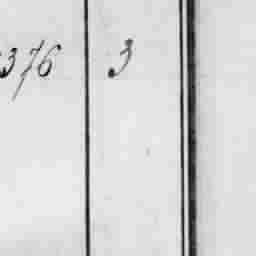 376 3